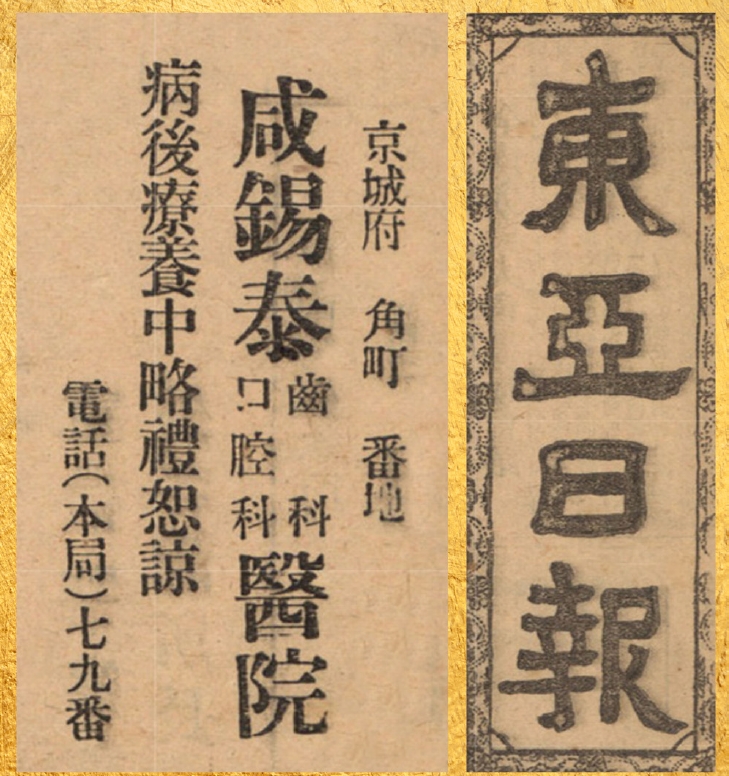 東亞日報
京城府 角町 番地
咸錫泰 齒科 口腔科 醫院
病後療養中略禮恕諒
電話(本局)七九番